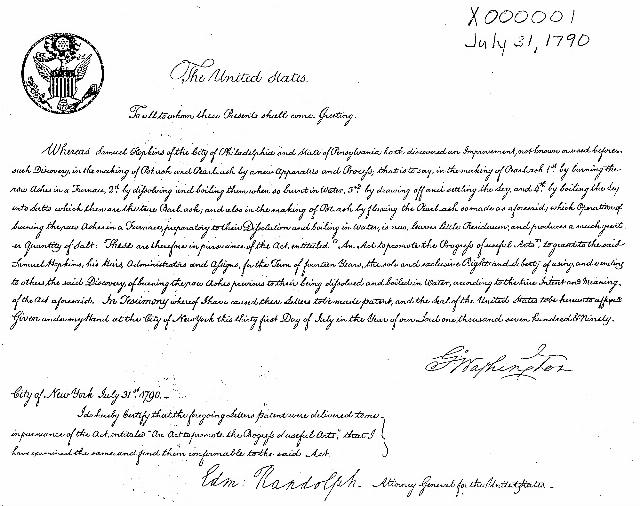 X000001
July 31, 1790
The United States.
To all to whom these Presents shall come, Greeting.
Whereas Samuel Hopkins of the City of Philadelphia and State of Pensylvania hath discovered an Improvement, not known or used before
such Discovery, in the making of Pot ash and Pearl ash by a new Apparatus and Process; that is to say, in the making of Pearl ash 1st. by burning the
raw Ashes in a Furnace, 2d. by dissolving and boiling them when so burnt in Water, 3rd. by drawing off and settling the Ley, and 4th. by boiling the Ley
into Salts which then are the true Pearl ash; and also in the making of Pot ash by fluxing the Pearl ash so made as aforesaid; which Operation of
burning the raw Ashes in a Furnace, preparatory to their Dissolution and boiling in Water, is new, leaves little Residuum; and produces a much great-
er Quantity of Salt: These are therefore in pursuance of the Act, entitled "An Act to promote the Progress of useful Arts", to grant to the said
Samuel Hopkins, his Heirs, Administrators and Assigns, for the Term of fourteen Years, the sole and exclusive Right and Liberty of using, and vending
to others the said Discovery, of burning the raw Ashes previous to their being dissolved and boiled in Water, according to the true Intent and Meaning
of the Act aforesaid. In Testimony whereof I have caused these Letters to be made patent, and the Seal of the United States to be hereunto affixed
Given under my Hand at the City of New York this thirty first Day of July in the Year of our Lord one thousand seven hundred & Ninety.
G. Washington
City of New York July 31st. 1790. –
I do hereby Certify that the foregoing Letters patent were delivered to me
in pursuance of the Act, entitled "An Act to promote the Progress of useful Arts"; that I
have examined the same, and find them conformable to the said Act.
Edm: Randolph Attorney General for the United States.